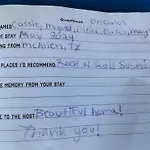 Guestbook
NAMES Cassie, Miguel, Dr. Carlos
OF STAY May 2024
NG FROM McAllen, TX
PLACES I'D RECOMMEND Rock n Roll Sushi
E MEMORY FROM YOUR STAY
E TO THE HOST Beautiful home!
Thank you!